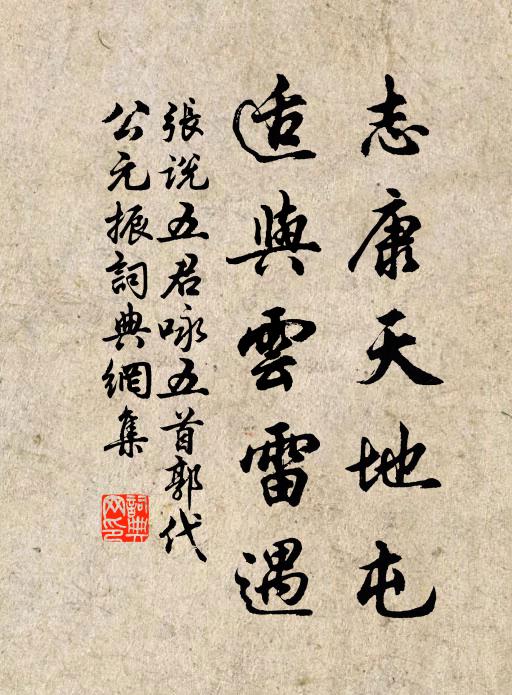 志康天地屯
适與雲雷遇
張說五君咏五首郭代
公元振詞典網集
詞典網印